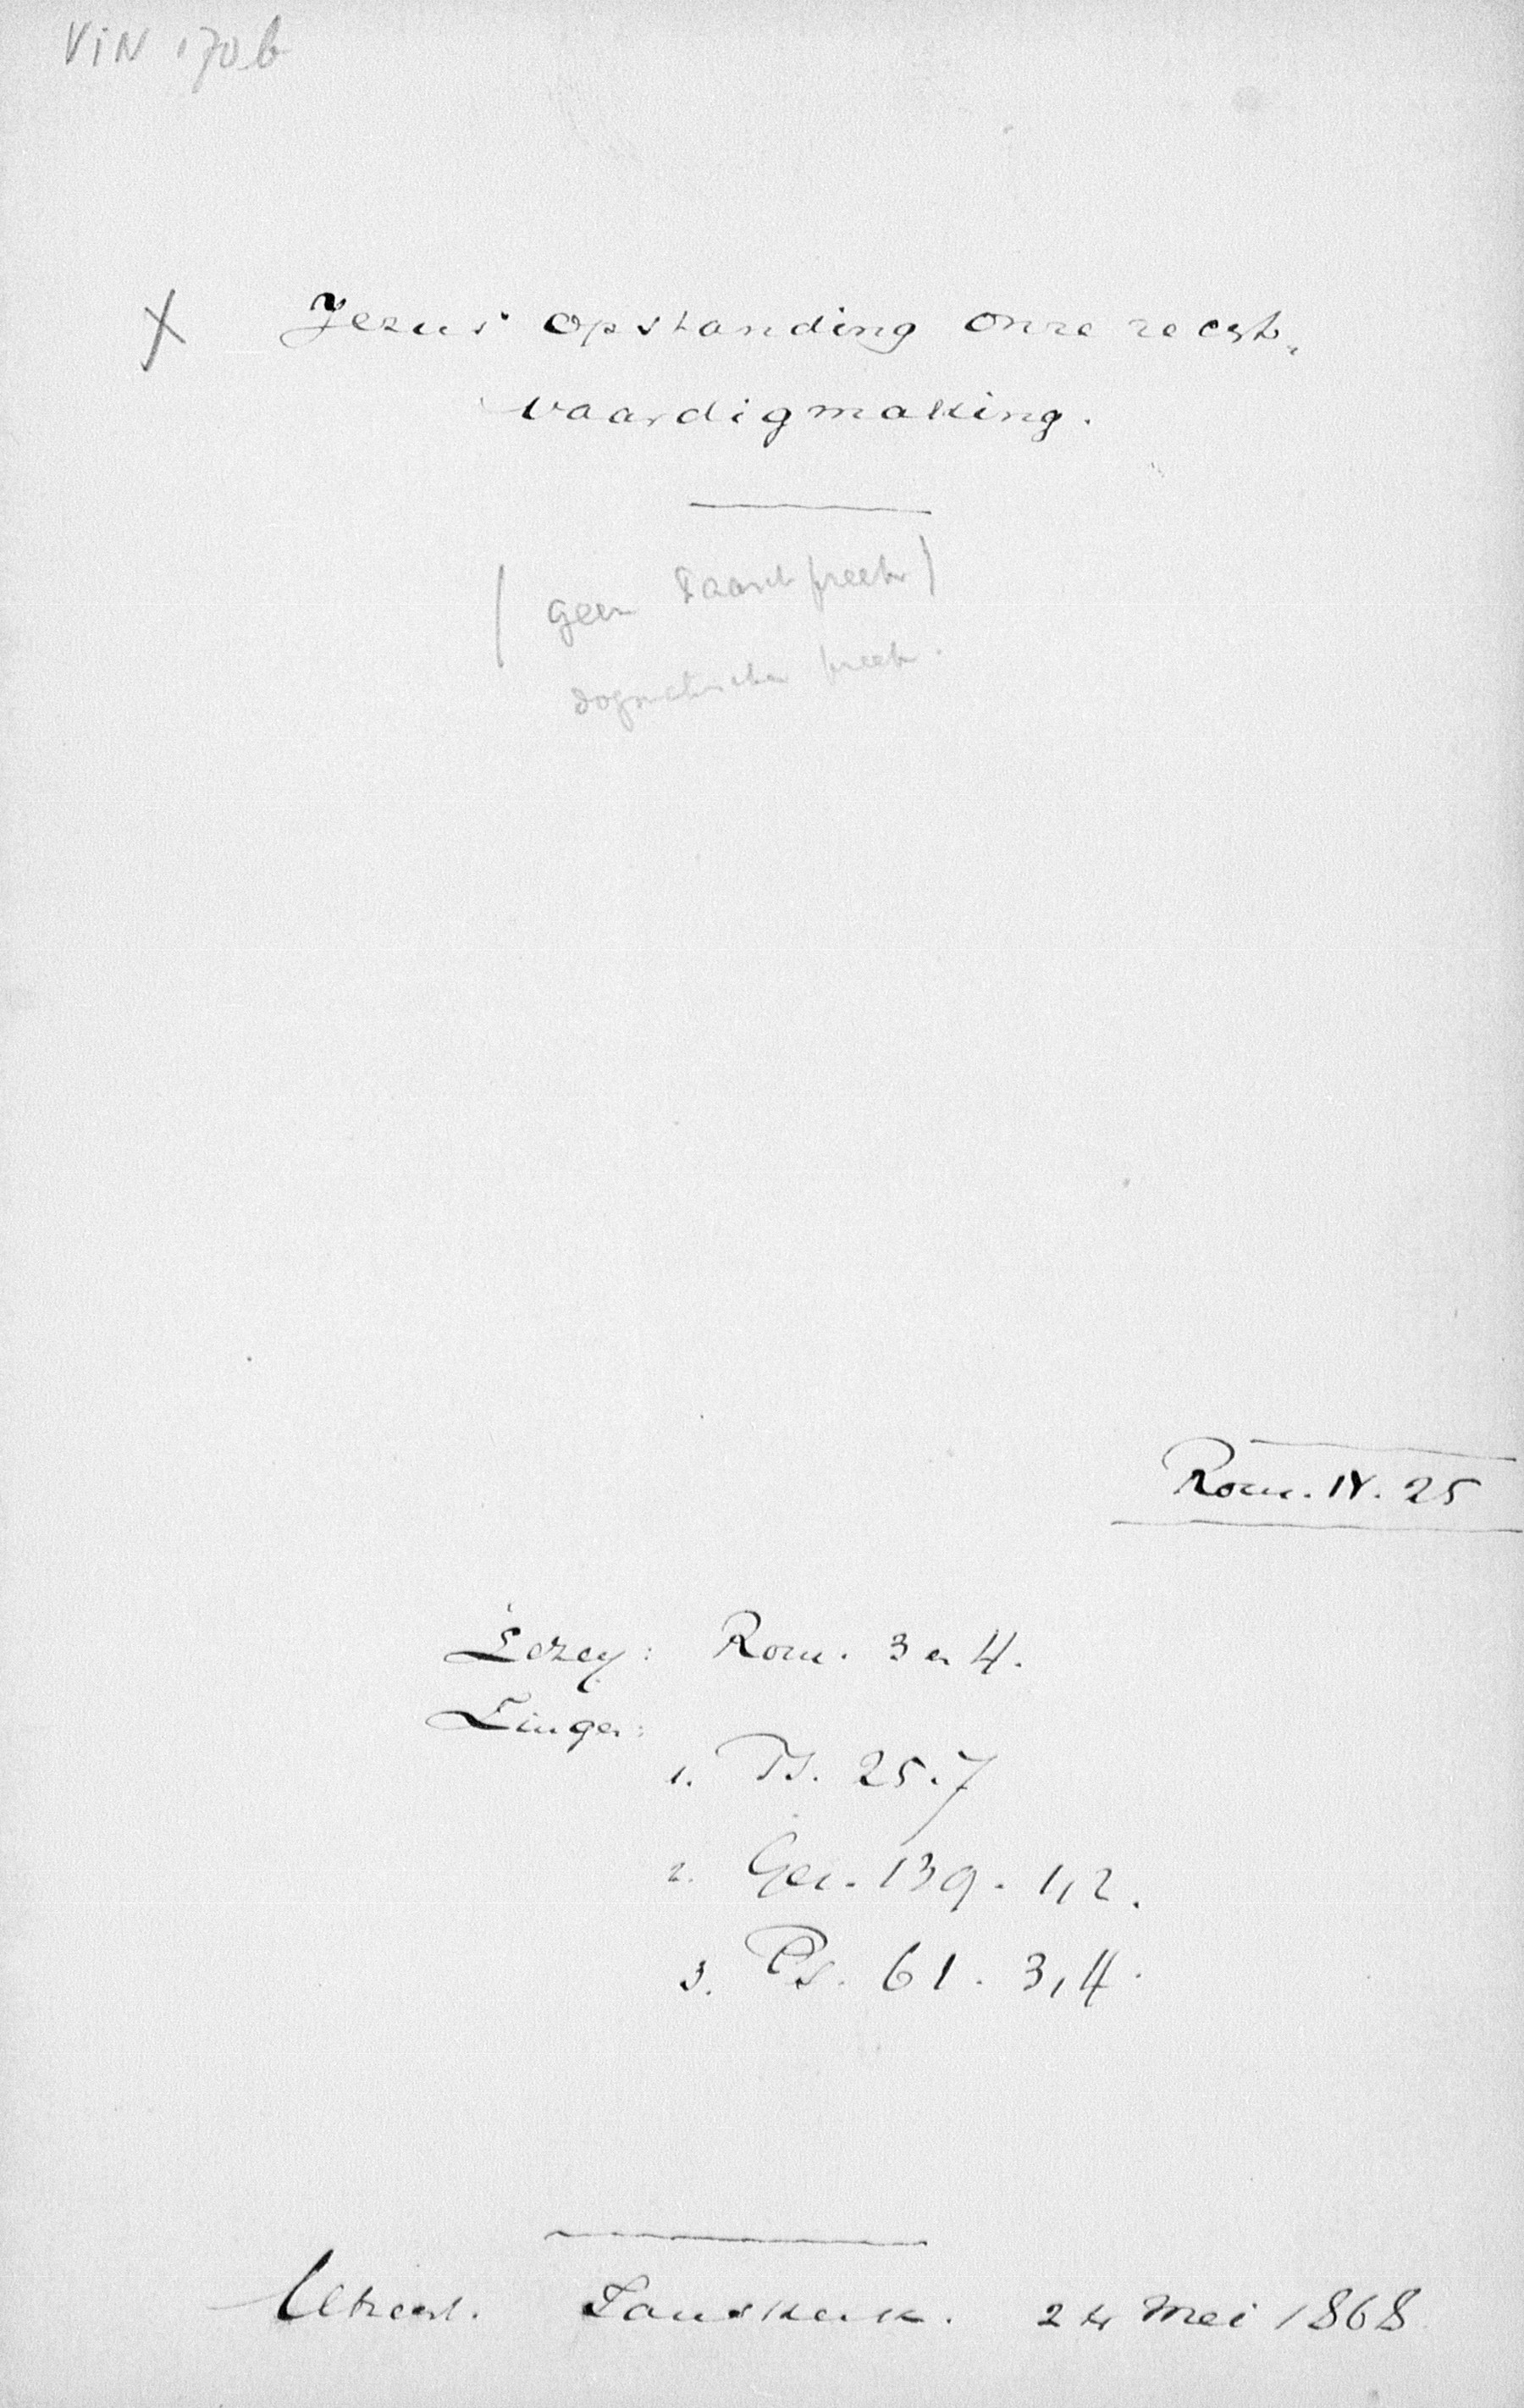 VIN 170b
X Jezus' opstanding onze recht-
vaardigmaking.
( geen Paaschpreek )
dogmatische preek.
Rom. IV. 25
Lezen: Rom. 3 en 4.
Zingen:
1. Ps. 25.7
2. Gez. 139. 1,2.
3. Ps. 61. 3,4.
Utrecht. Janskerk. 24 Mei 1868